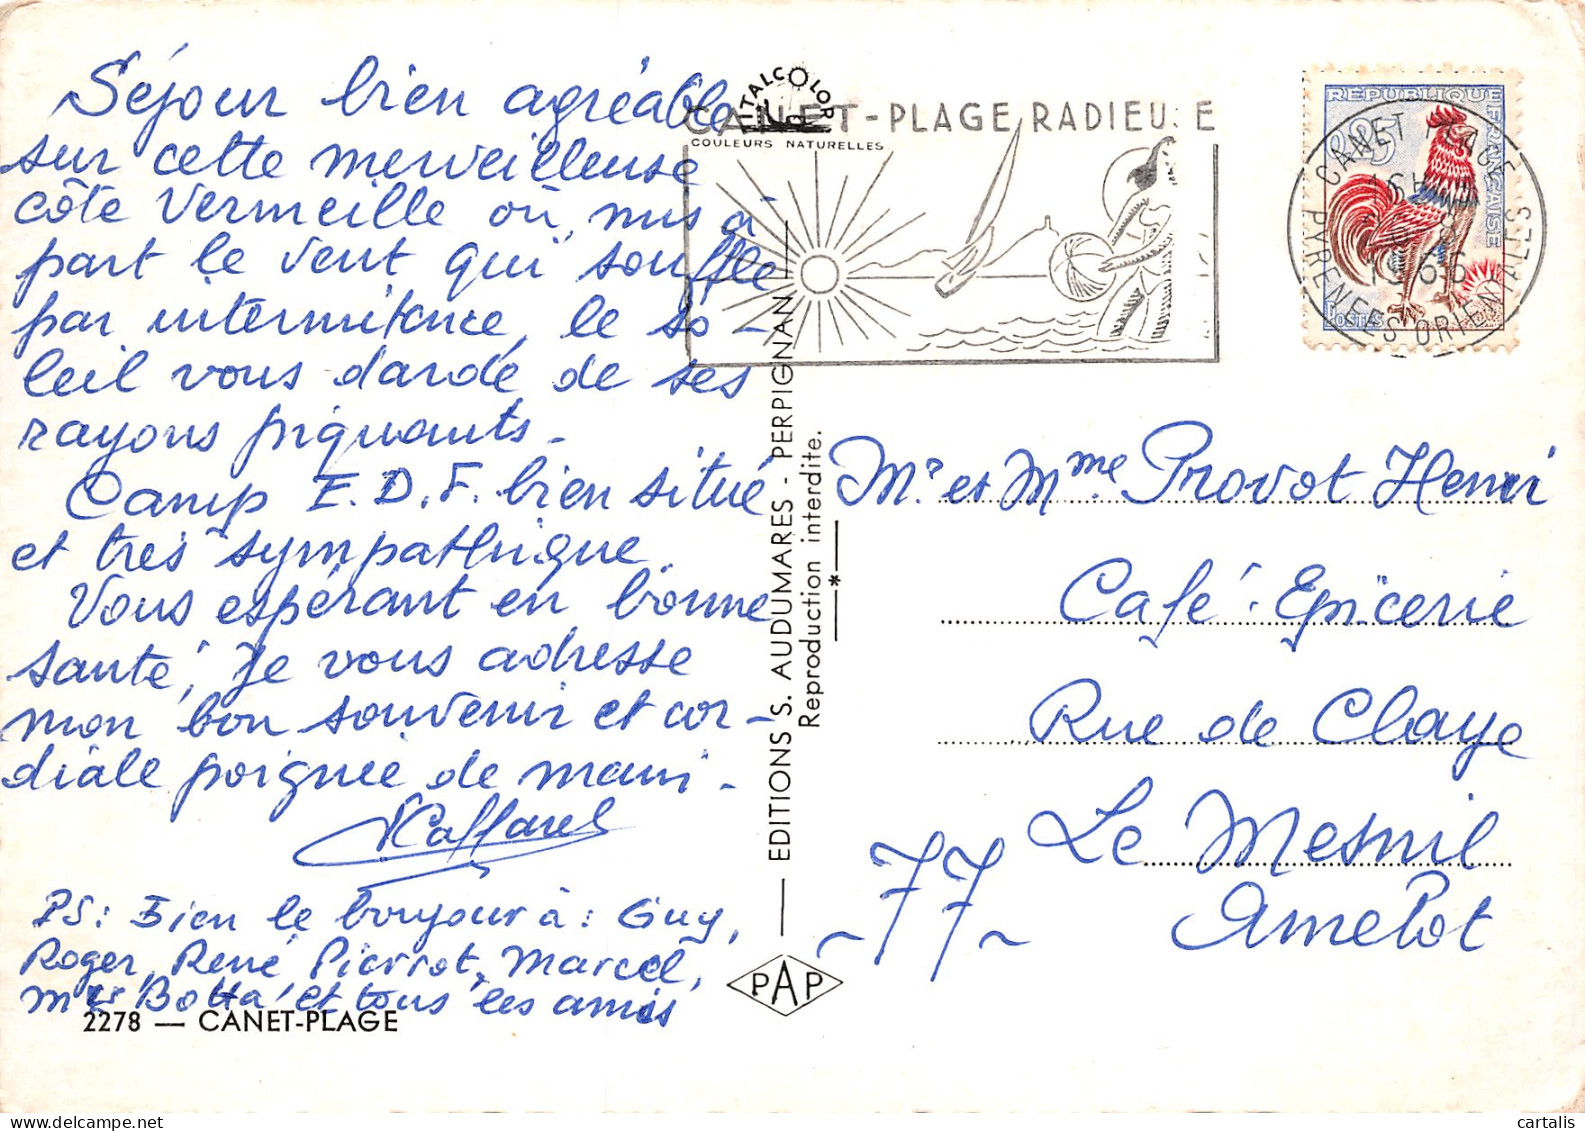 Séjour bien agréable
sur cette merveilleuse
côte Vermeille où, mis à
part le vent qui souffle
par intermitence, le so-
leil vous darde de ses
rayons piquants-
Camp E.D.F. bien situé
et très sympathique.
Vous espérant en bonne
santé, je vous adresse
mon bon souvenir et cor-
diale poignée de main-
Caffarel
PS: Bien le bonjour à: Guy,
Roger, René, Pierrot, Marcel,
Mr Botta, et tous les amis
2278 — CANET-PLAGE
VITALCOLOR
COULEURS NATURELLES
CANET-PLAGE RADIEUSE
REPUBLIQUE FRANÇAISE
0,25
POSTES
CANET PLAGE
16H
1966
PYRENEES ORIENTALES
EDITIONS S. AUDUMARES - PERPIGNAN
Reproduction interdite.
*
PAP
Mr et Mme Provot Henri
Café-Epicerie
Rue de Claye
Le Mesnil
Amelot
-77-
cartalis